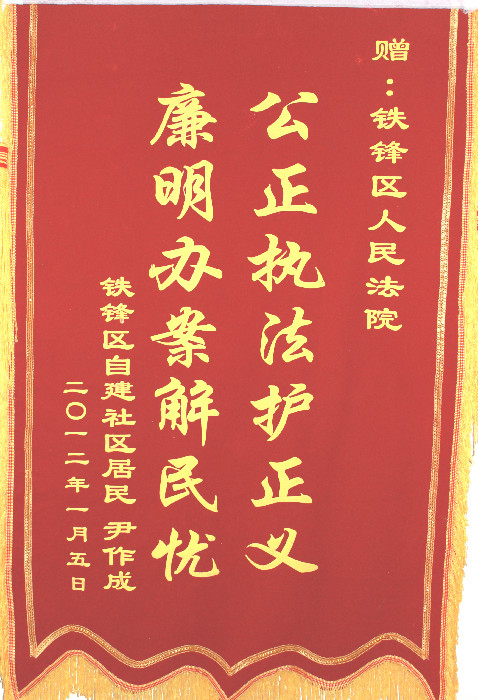 赠:铁锋区人民法院
公正执法护正义
廉明办案解民忧
铁锋区自建社区居民 尹作成
二〇一二年一月五日